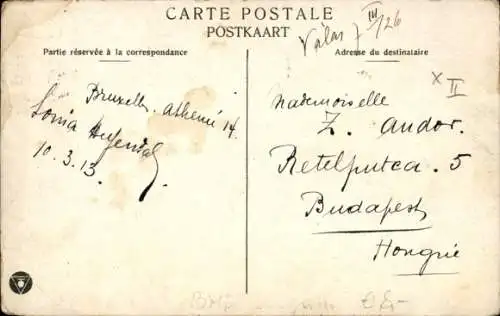 CARTE POSTALE
POSTKAART
Partie réservée à la correspondance
Adresse du destinataire
Bruxelles. Athenée 14.
Sonia
10.3.13.
Válas 7 III/26
x II
Mademoiselle
Z. Andor.
Retelputca. 5
Budapest
Hongrie